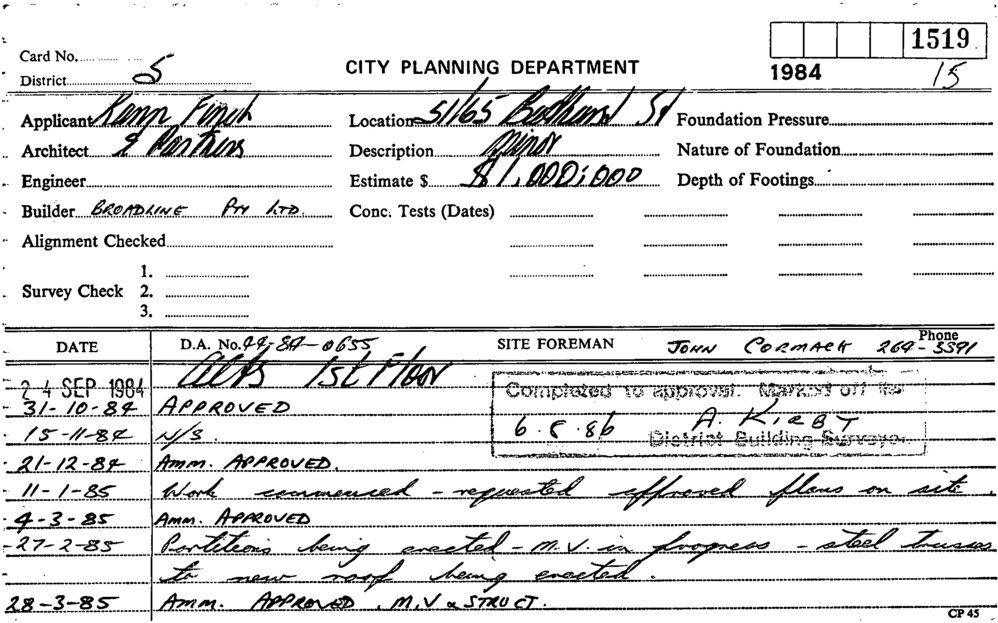 1519
Card No.
District 5
CITY PLANNING DEPARTMENT
1984 15
Applicant Kann Finch
Location 51/65 St
Foundation Pressure
Architect & Partners
Description Minor
Nature of Foundation
Engineer
Estimate $ $1,000,000
Depth of Footings
Builder BROADLINE PTY LTD.
Conc. Tests (Dates)
Alignment Checked
1.
Survey Check 2.
3.
DATE
D.A. No. 44-84-0655
SITE FOREMAN JOHN CORMACK
Phone
269-3591
24 SEP 1984 Alts 1st Floor
Completed to approval. Marked off list
31-10-84 APPROVED
6.5.86 A. KIRBY
15-11-84 N/S.
District Building Surveyor
21-12-84 Amm. APPROVED.
11-1-85 Work commenced - requested approved plans on site.
4-3-85 Amm. APPROVED
27-2-85 Partitions being erected - M.V. in progress - steel trusses
to new roof being erected.
28-3-85 Amm. APPROVED. M.V & STRUCT.
CP 45